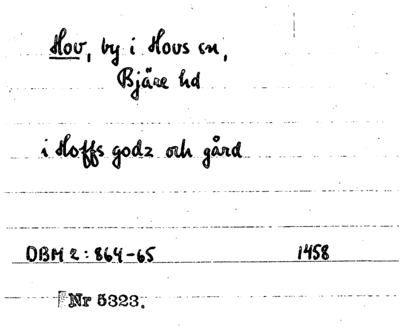 Hov, by i Hovs sn,
Bjäre hd
i Hoffs godz och gård
DBM 2:864-65 1458
Nr 5323.